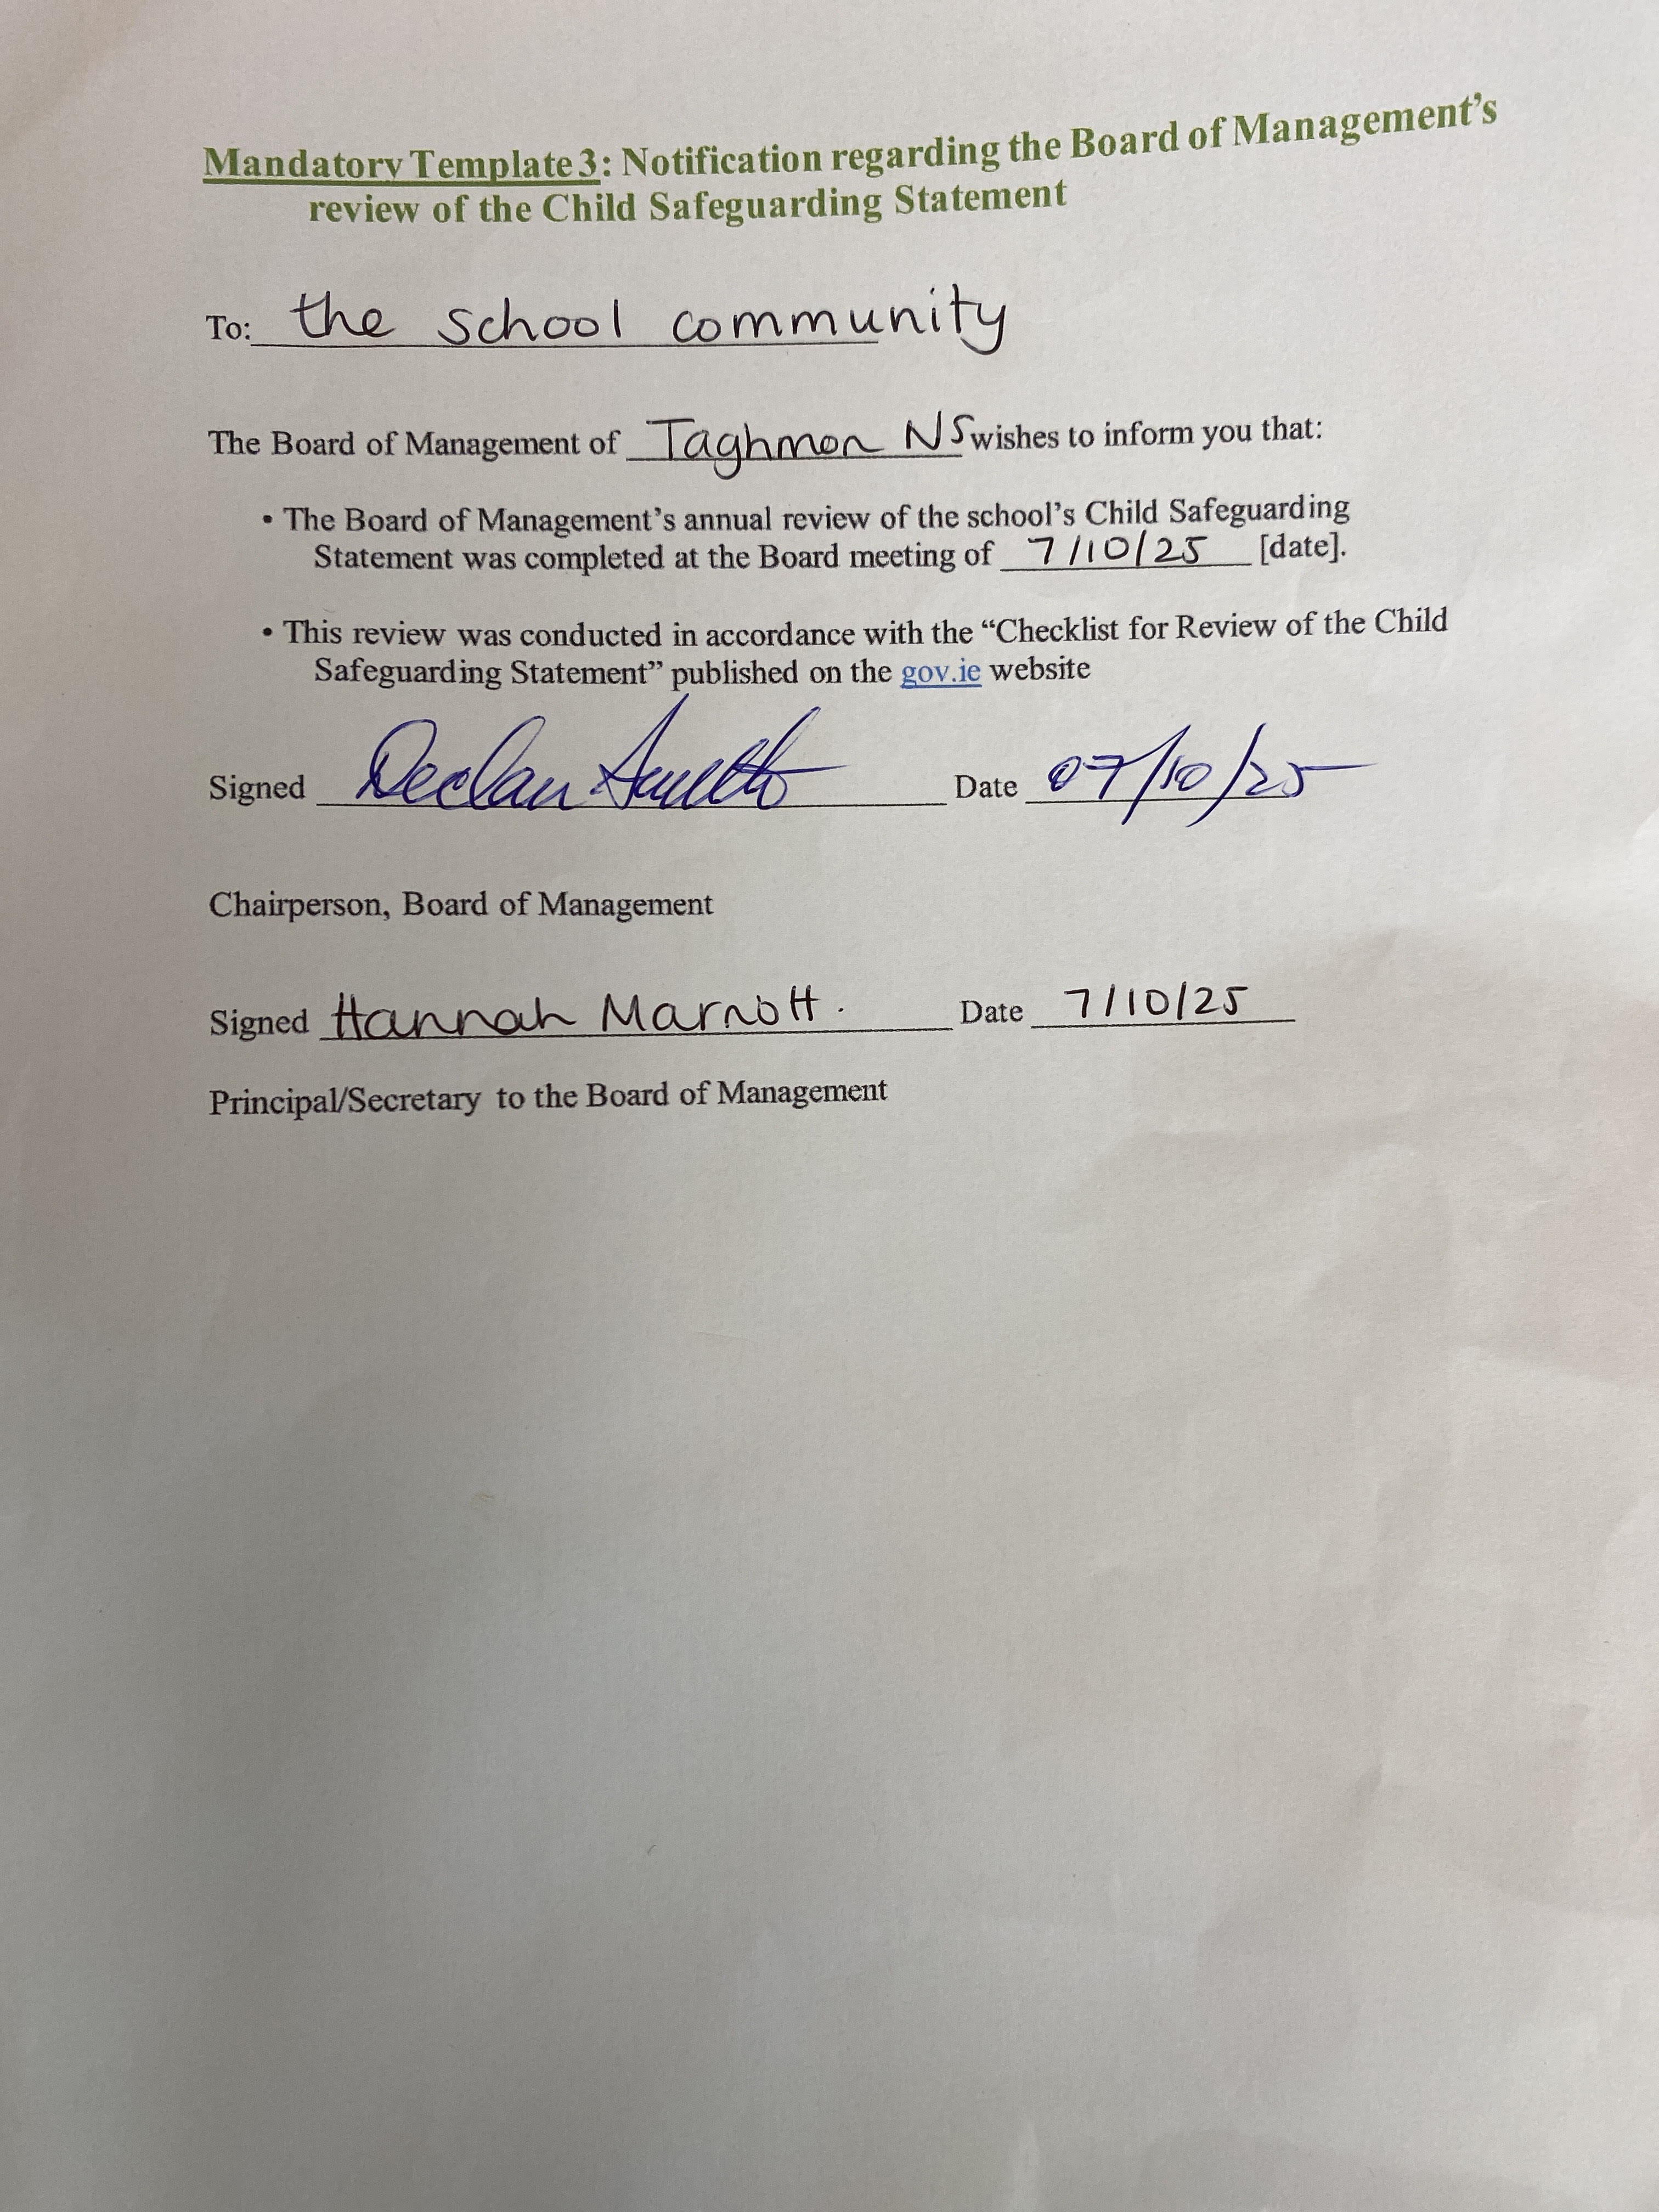 Mandatory Template 3: Notification regarding the Board of Management's
review of the Child Safeguarding Statement
To: the school community
The Board of Management of Taghmon NS wishes to inform you that:
• The Board of Management's annual review of the school's Child Safeguarding
Statement was completed at the Board meeting of 7/10/25 [date].
• This review was conducted in accordance with the “Checklist for Review of the Child
Safeguarding Statement” published on the gov.ie website
Signed Declan Date 07/10/25
Chairperson, Board of Management
Signed Hannah Marriott. Date 7/10/25
Principal/Secretary to the Board of Management